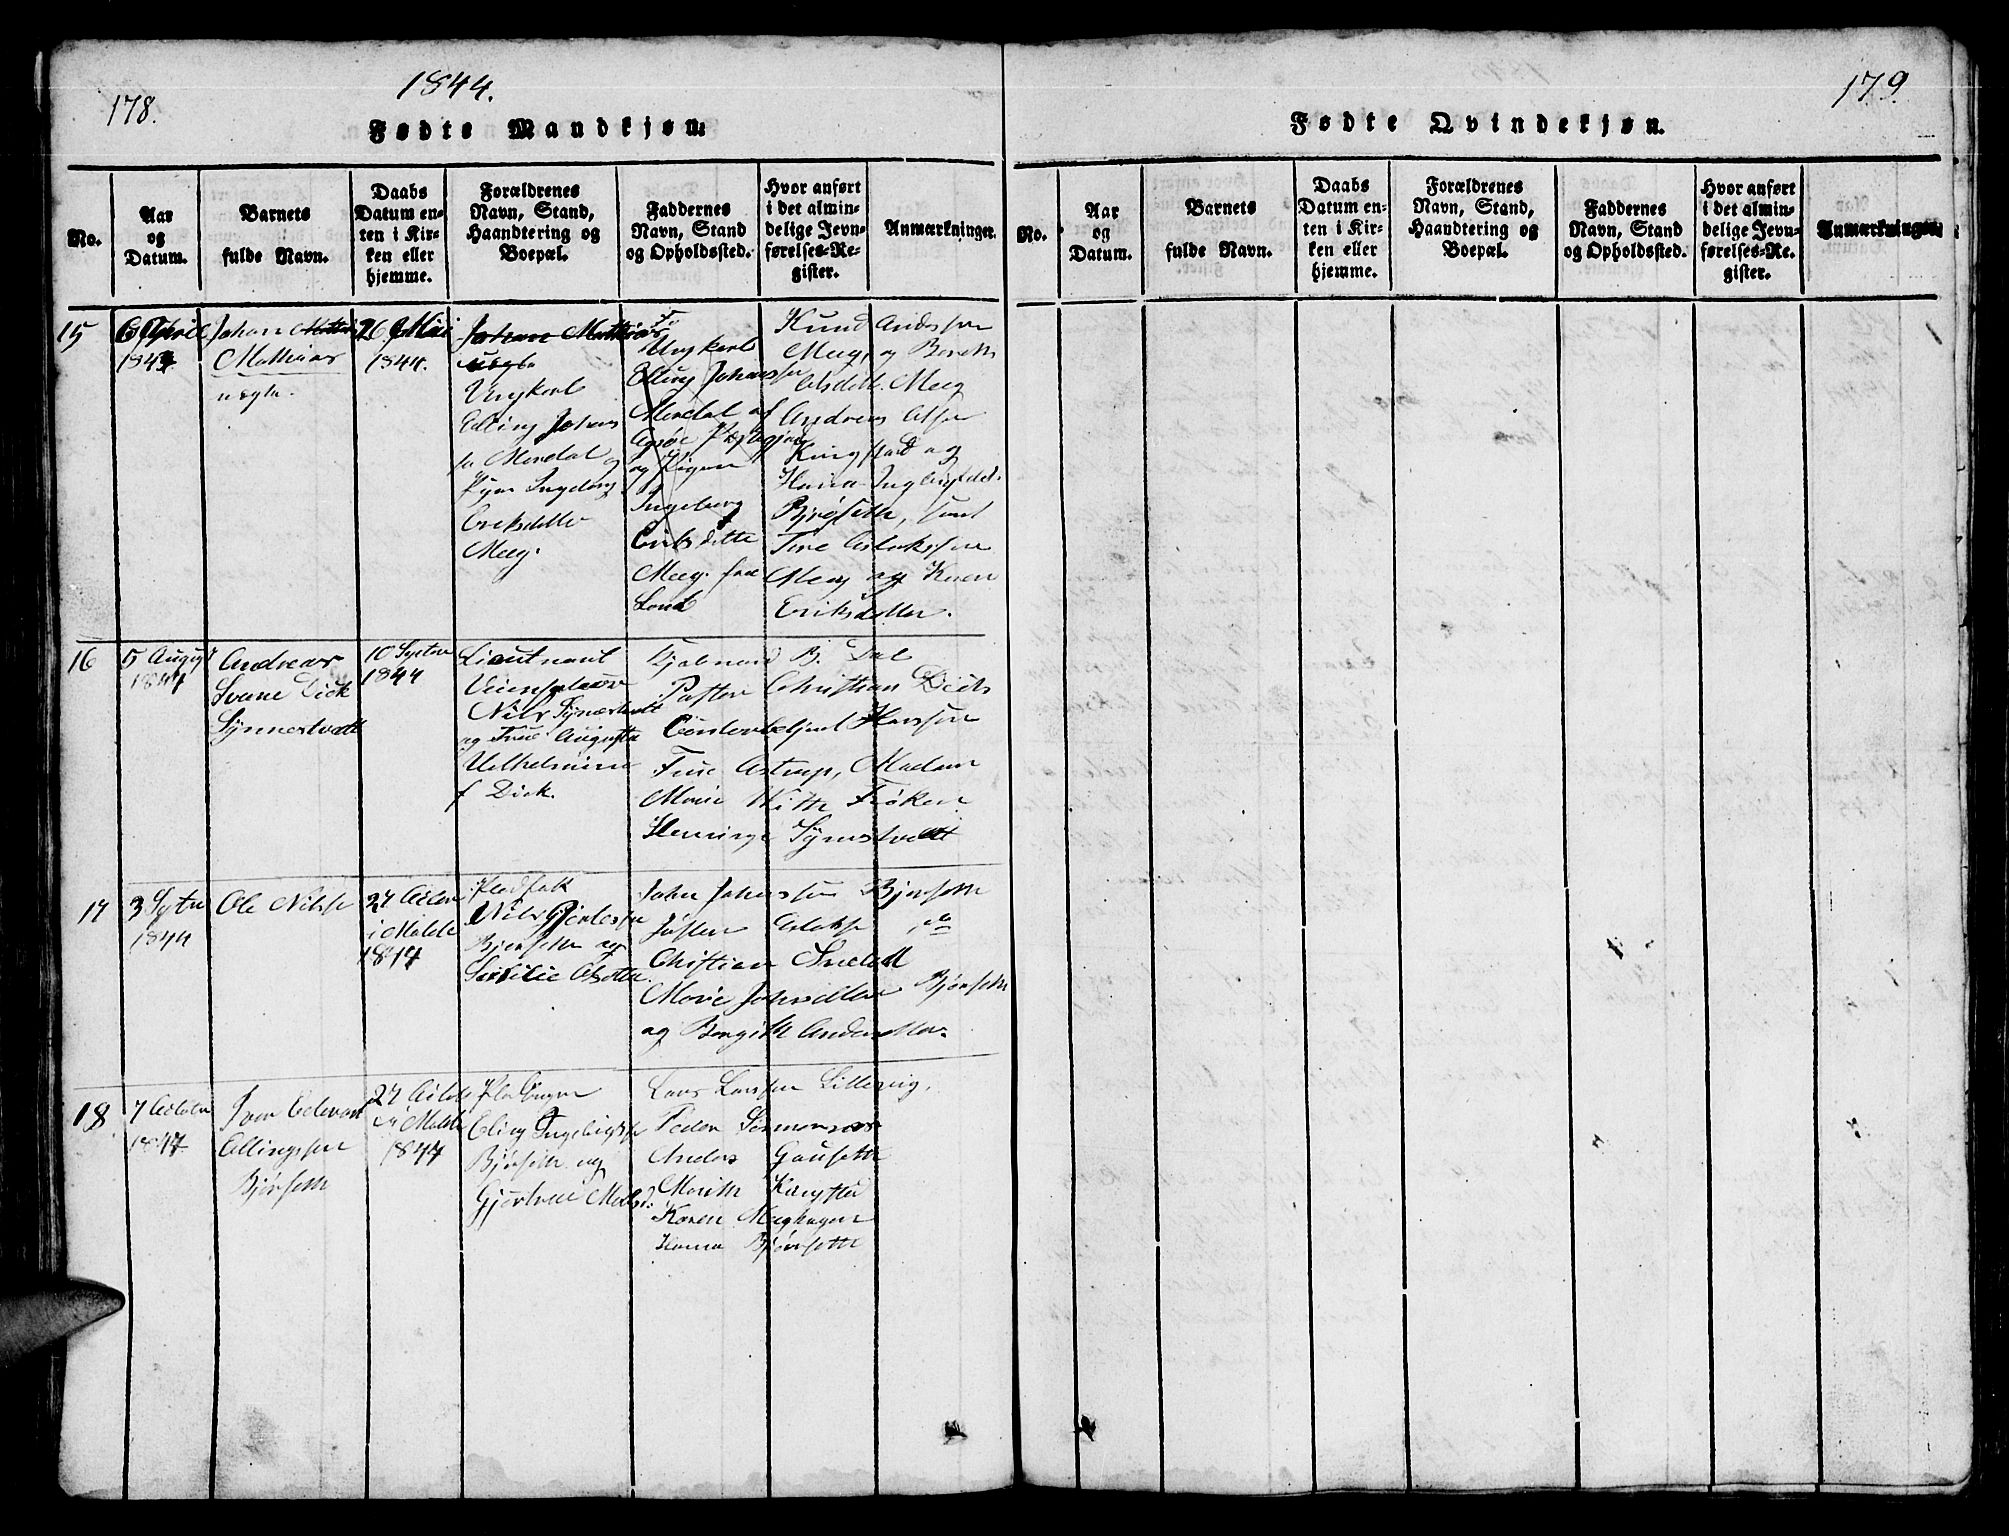 178.
1844.
Fødte Mandkjøn.
No.
Aar
og
Datum.
Barnets
fulde Navn.
Daabs
Datum en-
ten i Kir-
ken eller
hjemme.
Forældrenes
Navn, Stand,
Haandtering og
Boepæl.
Faddernes
Navn, Stand
og Opholdssted.
Hvor anført
i det almin-
delige Jevn-
førelses-Re-
gister.
Anmærkninger.
15
6 April
1844
Johan
Mathias
uegte.
26 Mai
1844.
Johan Mathias
uegte
Ungkarl
Elling Johans
Meedal og
Pigen Ingeborg
Eriksdatter
Meeg.
Ungkarl
Elling Johansen
Meedal af
og Pigen
Ingeborg
Eriksdatter
Meeg.
Knud Anderssen
Meeg, og Bereth
Meeg
Andreas
Ringstad og
Hanna
Bjørseth, samt
Tore Aslakssen
Meeg og Karen
Eriksdatter.
16
5 August
1844
Andreas
Svane Dick
Synnestvedt
10 Septbr
1844
Lieutnant
Nils Synnestvedt
og Frue Augusta
Vilhelmine
f Dick.
Hjalmand B. Dal
Pastor Christian Dick
Hanssen
Frue Astrup, Madam
Marie With Frøken
Henninge Synnestvedt
17
3 Septbr
1844
Ole Nilss
27 Octbr
i Molde
1844
Pladsfolk
Nils
Bjørseth og
John Johanssen Bjørseth
Jøsten Aslaks do
Christian
Marie Johnsdatter Bjørseth
og Bergith Andersdatter
18
7 Octobr
1844
Iver Edevart
Ellingssen
Bjørseth
27 Octb
i Molde
1844
Elling Ingebrigtss
Bjørseth og
Lars Larssen Lillevig,
Peder
Anders Gauseth
Marith
Karen Meeghagen
Hanna Bjørseth
179.
Fødte Qvindekjøn.
No.
Aar
og
Datum.
Barnets
fulde Navn.
Daabs
Datum en-
ten i Kir-
ken eller
hjemme.
Forældrenes
Navn, Stand,
Haandtering og
Boepæl.
Faddernes
Navn, Stand
og Opholdssted.
Hvor anført
i det almin-
delige Jevn-
førelses-Re-
gister.
Anmærkninger.